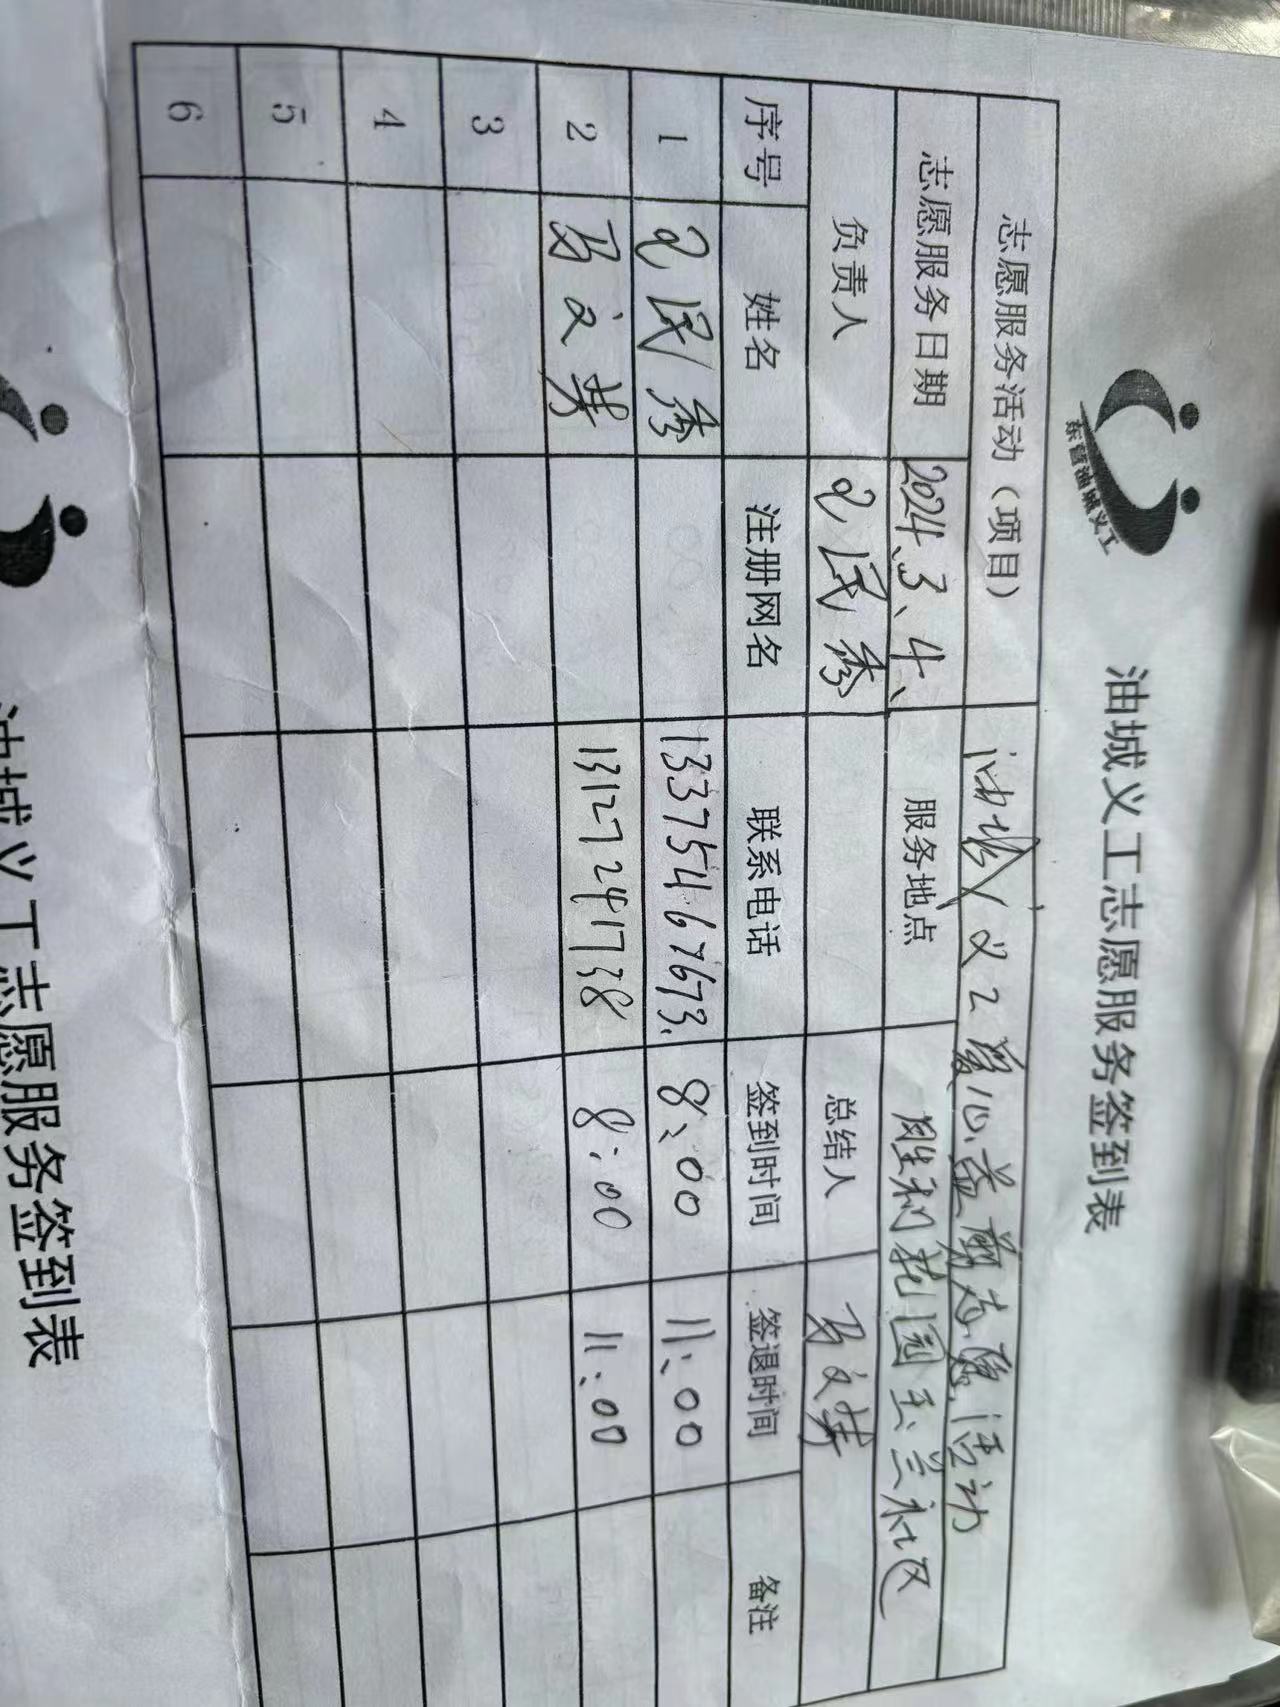 东营油城义工
油城义工志愿服务签到表
志愿服务活动（项目） 油城义工爱心益剪志愿活动
志愿服务日期 2024、3、4、 服务地点 胜利花园玉兰社区
负责人 民秀 总结人 马文英
序号 姓名 注册网名 联系电话 签到时间 签退时间 备注
1 民秀 13375467673. 8:00 11:00
2 马文英 13127241738 8:00 11:00
3
4
5
6
油城义工志愿服务签到表